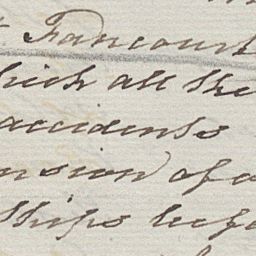 Fancourt
which all the
accidents
nsion of a
ships befo